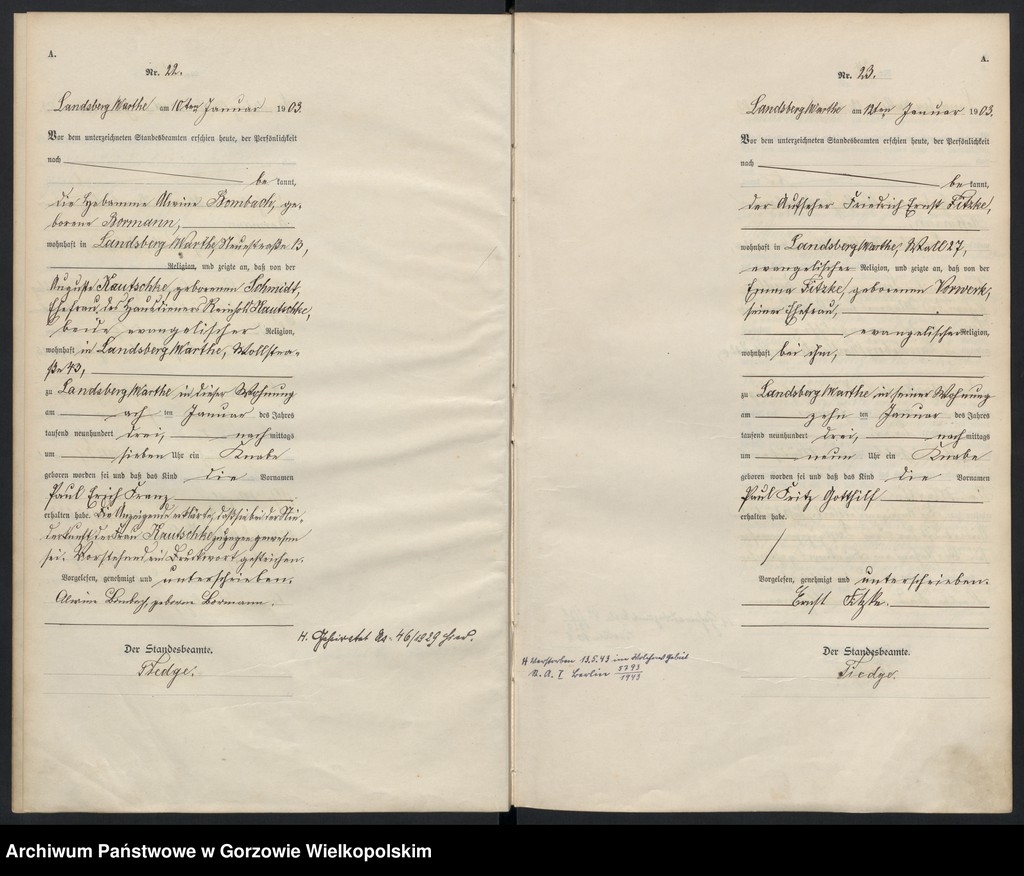 A.
Nr. 22.
Landsberg Warthe am 10ten Januar 1903.
Vor dem unterzeichneten Standesbeamten erschien heute, der Persönlichkeit
nach
be kannt,
die Hebamme Alwine Bombach, ge-
borene Bormann,
wohnhaft in Landsberg Warthe, Neuestraße 13,
Religion, und zeigte an, daß von der
Auguste Kautschke, geborenen Schmidt,
Ehefrau des Hausdieners Reinhold Kautschke,
beide evangelischer Religion,
wohnhaft in Landsberg Warthe, Wollstra-
ße 43,
zu Landsberg Warthe in dieser Wohnung
am ach ten Januar des Jahres
tausend neunhundert drei, nach mittags
um sieben Uhr ein Knabe
geboren worden sei und daß das Kind die Vornamen
Paul Erich Franz
erhalten habe. Die Anzeigende erklärte, daß sie bei der Nie-
derkunft der Frau Kautschke zugegen gewesen
sei. Vorstehend ein Druckwort gestrichen.
Vorgelesen, genehmigt und unterschrieben.
Alwine Bombach, geborne Bormann.
H. Geheiratet No. 46/1929 hier.
Der Standesbeamte.
Tiedge.
A.
Nr. 23.
Landsberg Warthe am 12ten Januar 1903.
Vor dem unterzeichneten Standesbeamten erschien heute, der Persönlichkeit
nach
be kannt,
der Aufseher Friedrich Ernst Fitzke,
wohnhaft in Landsberg Warthe, Wall 27,
evangelischer Religion, und zeigte an, daß von der
Emma Fitzke, geborenen Vorwerk,
seiner Ehefrau,
evangelischer Religion,
wohnhaft bei ihm,
zu Landsberg Warthe in seiner Wohnung
am zehn ten Januar des Jahres
tausend neunhundert drei, nach mittags
um neun Uhr ein Knabe
geboren worden sei und daß das Kind die Vornamen
Paul Fritz Gotthilf
erhalten habe.
Vorgelesen, genehmigt und unterschrieben.
Ernst Fitzke.
H verstorben 13.5.43 im
St. A. I Berlin 5793/1943
Der Standesbeamte.
Tiedge.
Archiwum Państwowe w Gorzowie Wielkopolskim